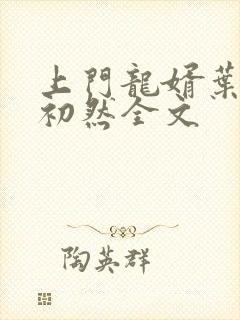 上門龍婿葉
初然全文
陶英群